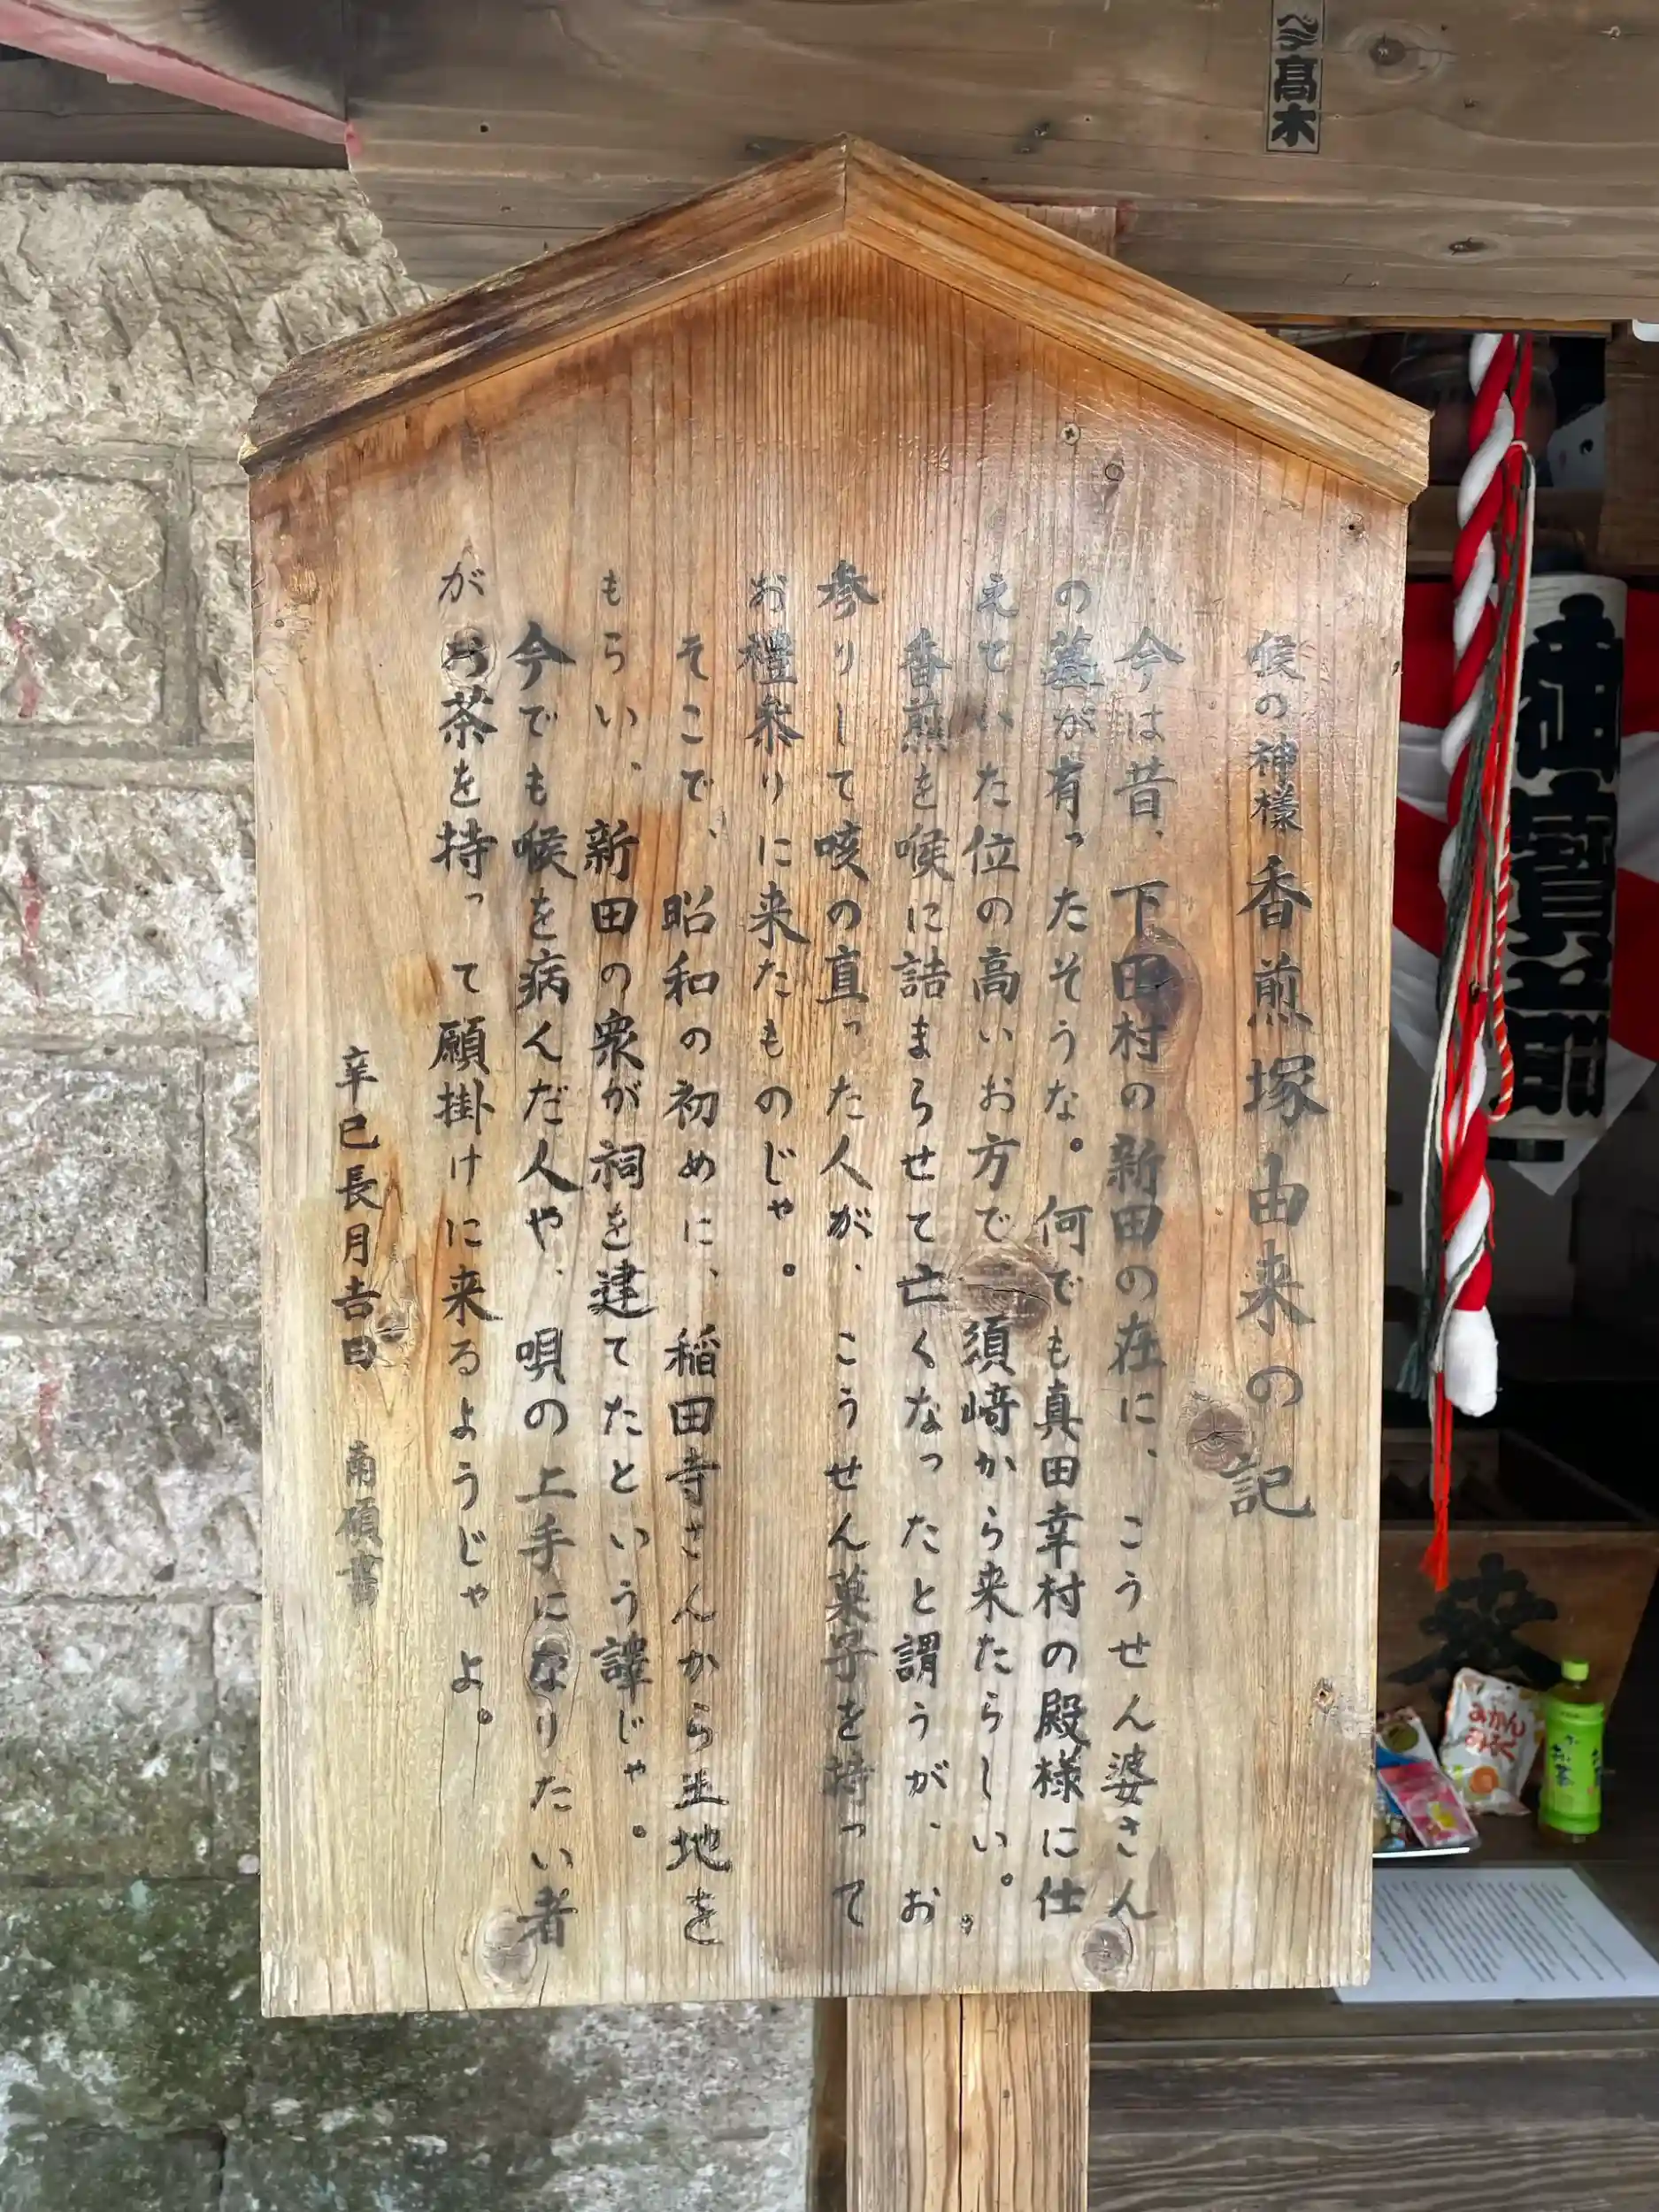 喉の神様 香煎塚由来の記
今は昔、下田村の新田の在に、こうせん婆さん
の墓が有ったそうな。何でも真田幸村の殿様に仕
えていた位の高いお方で、須﨑から来たらしい。
香煎を喉に詰まらせて亡くなったと謂うが、お
参りして咳の直った人が、こうせん菓子を持って
お禮参りに来たものじゃ。
そこで、昭和の初めに、稲田寺さんから土地を
もらい、新田の衆が祠を建てたという譚じゃ。
今でも喉を病んだ人や、唄の上手になりたい者
が お茶を持って願掛けに来るようじゃよ。
辛巳長月吉日 南碩書
髙木
みかん
みるく
お茶